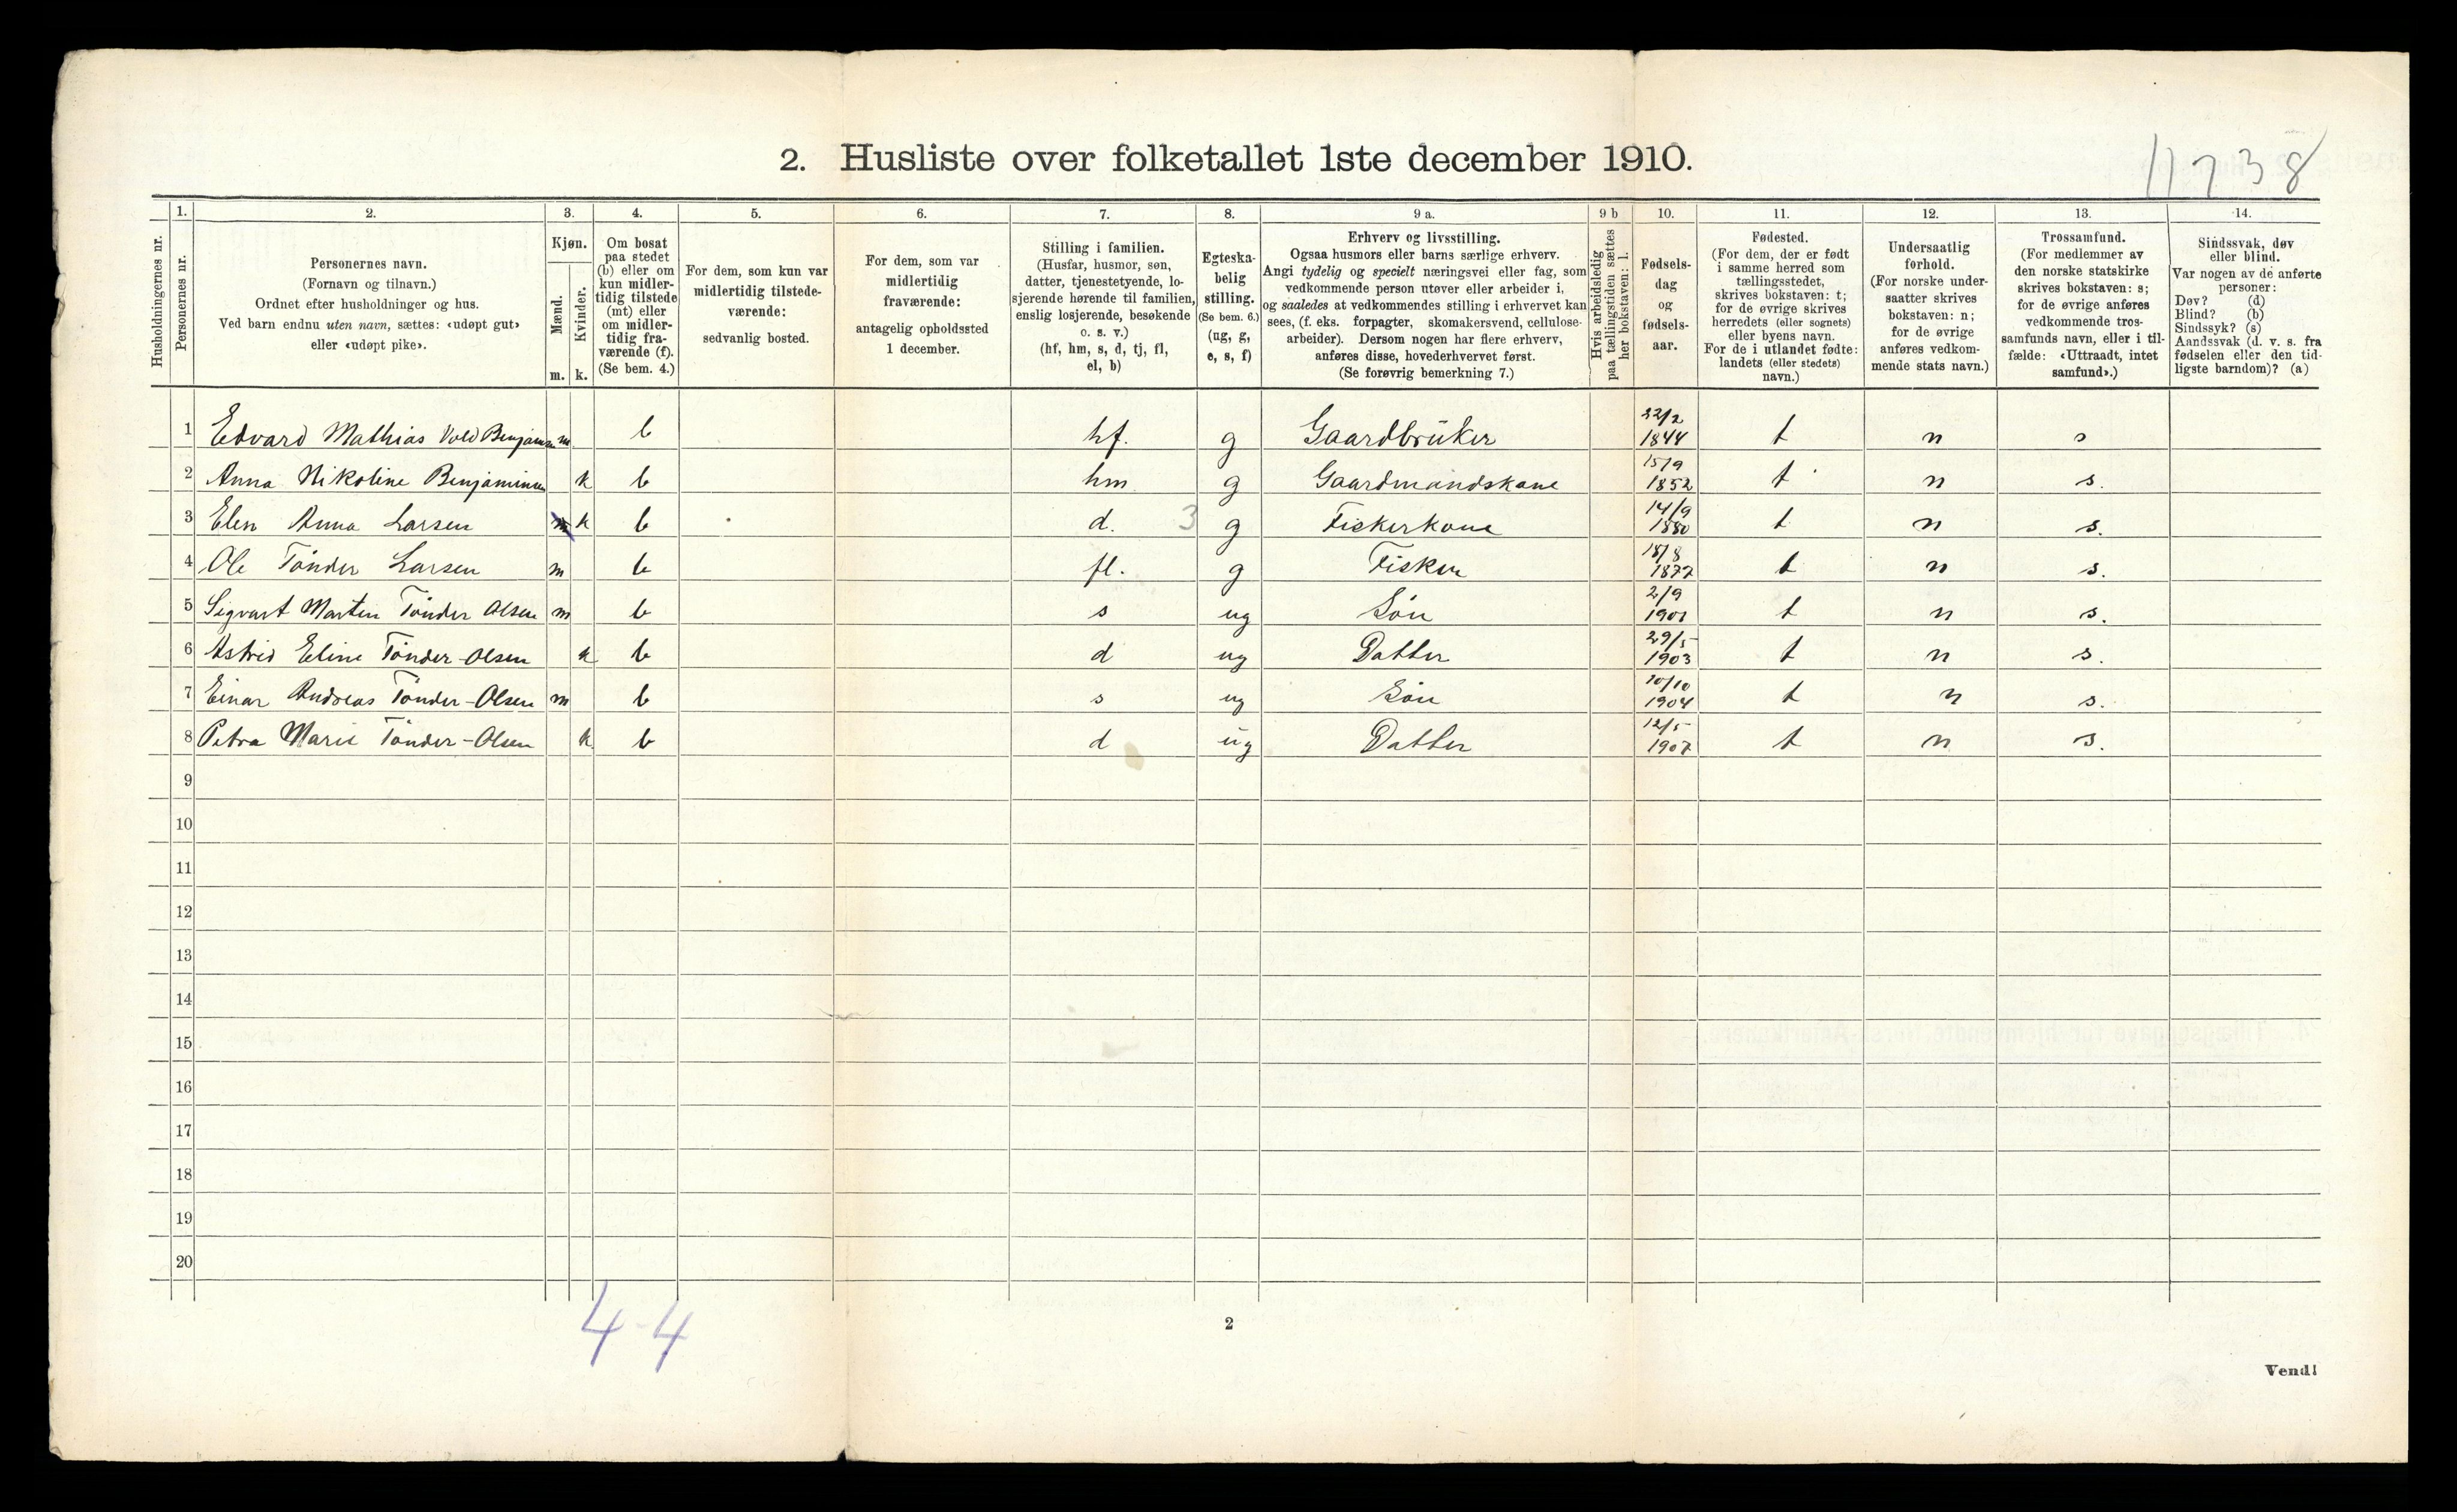 2. Husliste over folketallet 1ste december 1910.
11738
Husholdningernes nr.
1.
Personernes nr.
2.
Personernes navn.
(Fornavn og tilnavn.)
Ordnet efter husholdninger og hus.
Ved barn endnu uten navn, sættes: «udøpt gut»
eller «udøpt pike».
3.
Kjøn.
Mænd.
m.
Kvinder.
k.
4.
Om bosat
paa stedet
(b) eller om
kun midler-
tidig tilstede
(mt) eller
om midler-
tidig fra-
værende (f).
(Se bem. 4.)
5.
For dem, som kun var
midlertidig tilstede-
værende:
sedvanlig bosted.
6.
For dem, som var
midlertidig
fraværende:
antagelig opholdssted
1 december.
7.
Stilling i familien.
(Husfar, husmor, søn,
datter, tjenestetyende, lo-
sjerende hørende til familien,
enslig losjerende, besøkende
o. s. v.)
(hf, hm, s, d, tj, fl,
el, b)
8.
Egteska-
belig
stilling.
(Se bem. 6.)
(ug, g,
e, s, f)
9 a.
Erhverv og livsstilling.
Ogsaa husmors eller barns særlige erhverv.
Angi tydelig og specielt næringsvei eller fag, som
vedkommende person utøver eller arbeider i,
og saaledes at vedkommendes stilling i erhvervet kan
sees, (f. eks. forpagter, skomakersvend, cellulose-
arbeider). Dersom nogen har flere erhverv,
anføres disse, hovederhvervet først.
(Se forøvrig bemerkning 7.)
9 b
Hvis arbeidsledig
paa tællingstiden sættes
her bokstaven: l.
10.
Fødsels-
dag
og
fødsels-
aar.
11.
Fødested.
(For dem, der er født
i samme herred som
tællingsstedet,
skrives bokstaven: t;
for de øvrige skrives
herredets (eller sognets)
eller byens navn.
For de i utlandet fødte:
landets (eller stedets)
navn.)
12.
Undersaatlig
forhold.
(For norske under-
saatter skrives
bokstaven: n;
for de øvrige
anføres vedkom-
mende stats navn.)
13.
Trossamfund.
(For medlemmer av
den norske statskirke
skrives bokstaven: s;
for de øvrige anføres
vedkommende tros-
samfunds navn, eller i til-
fælde: «Uttraadt, intet
samfund».)
14.
Sindssvak, døv
eller blind.
Var nogen av de anførte
personer:
Døv? (d)
Blind? (b)
Sindssyk? (s)
Aandssvak (d. v. s. fra
fødselen eller den tid-
ligste barndom)? (a)
1 Edvard Mathias Vold Benjamsn m. b hf. g Gaardbrüker 22/2 1844 t n s
2 Anna Nikoline Benjaminsen k b hm g Gaardmandskone 15/9 1852 t n s.
3 Elen Anna Larsen m k b d. 3 g Fiskerkone 14/9 1880 t n s.
4 Ole Tönder Larsen m b fl. g Fisker 18/8 1877 t n s.
5 Sigvart Morten Tönder Olsen m b s ug Sön 2/9 1901 t n s.
6 Astrid Eline Tönder-Olsen k b d ug Datter 29/5 1903 t n s.
7 Einar Andreas Tönder-Olsen m b s ug Sön 10/10 1904 t n s.
8 Petra Marie Tönder-Olsen k b d ug Datter 12/5 1907 t n s.
9
10
11
12
13
14
15
16
17
18
19
20
4-4
2
Vend!